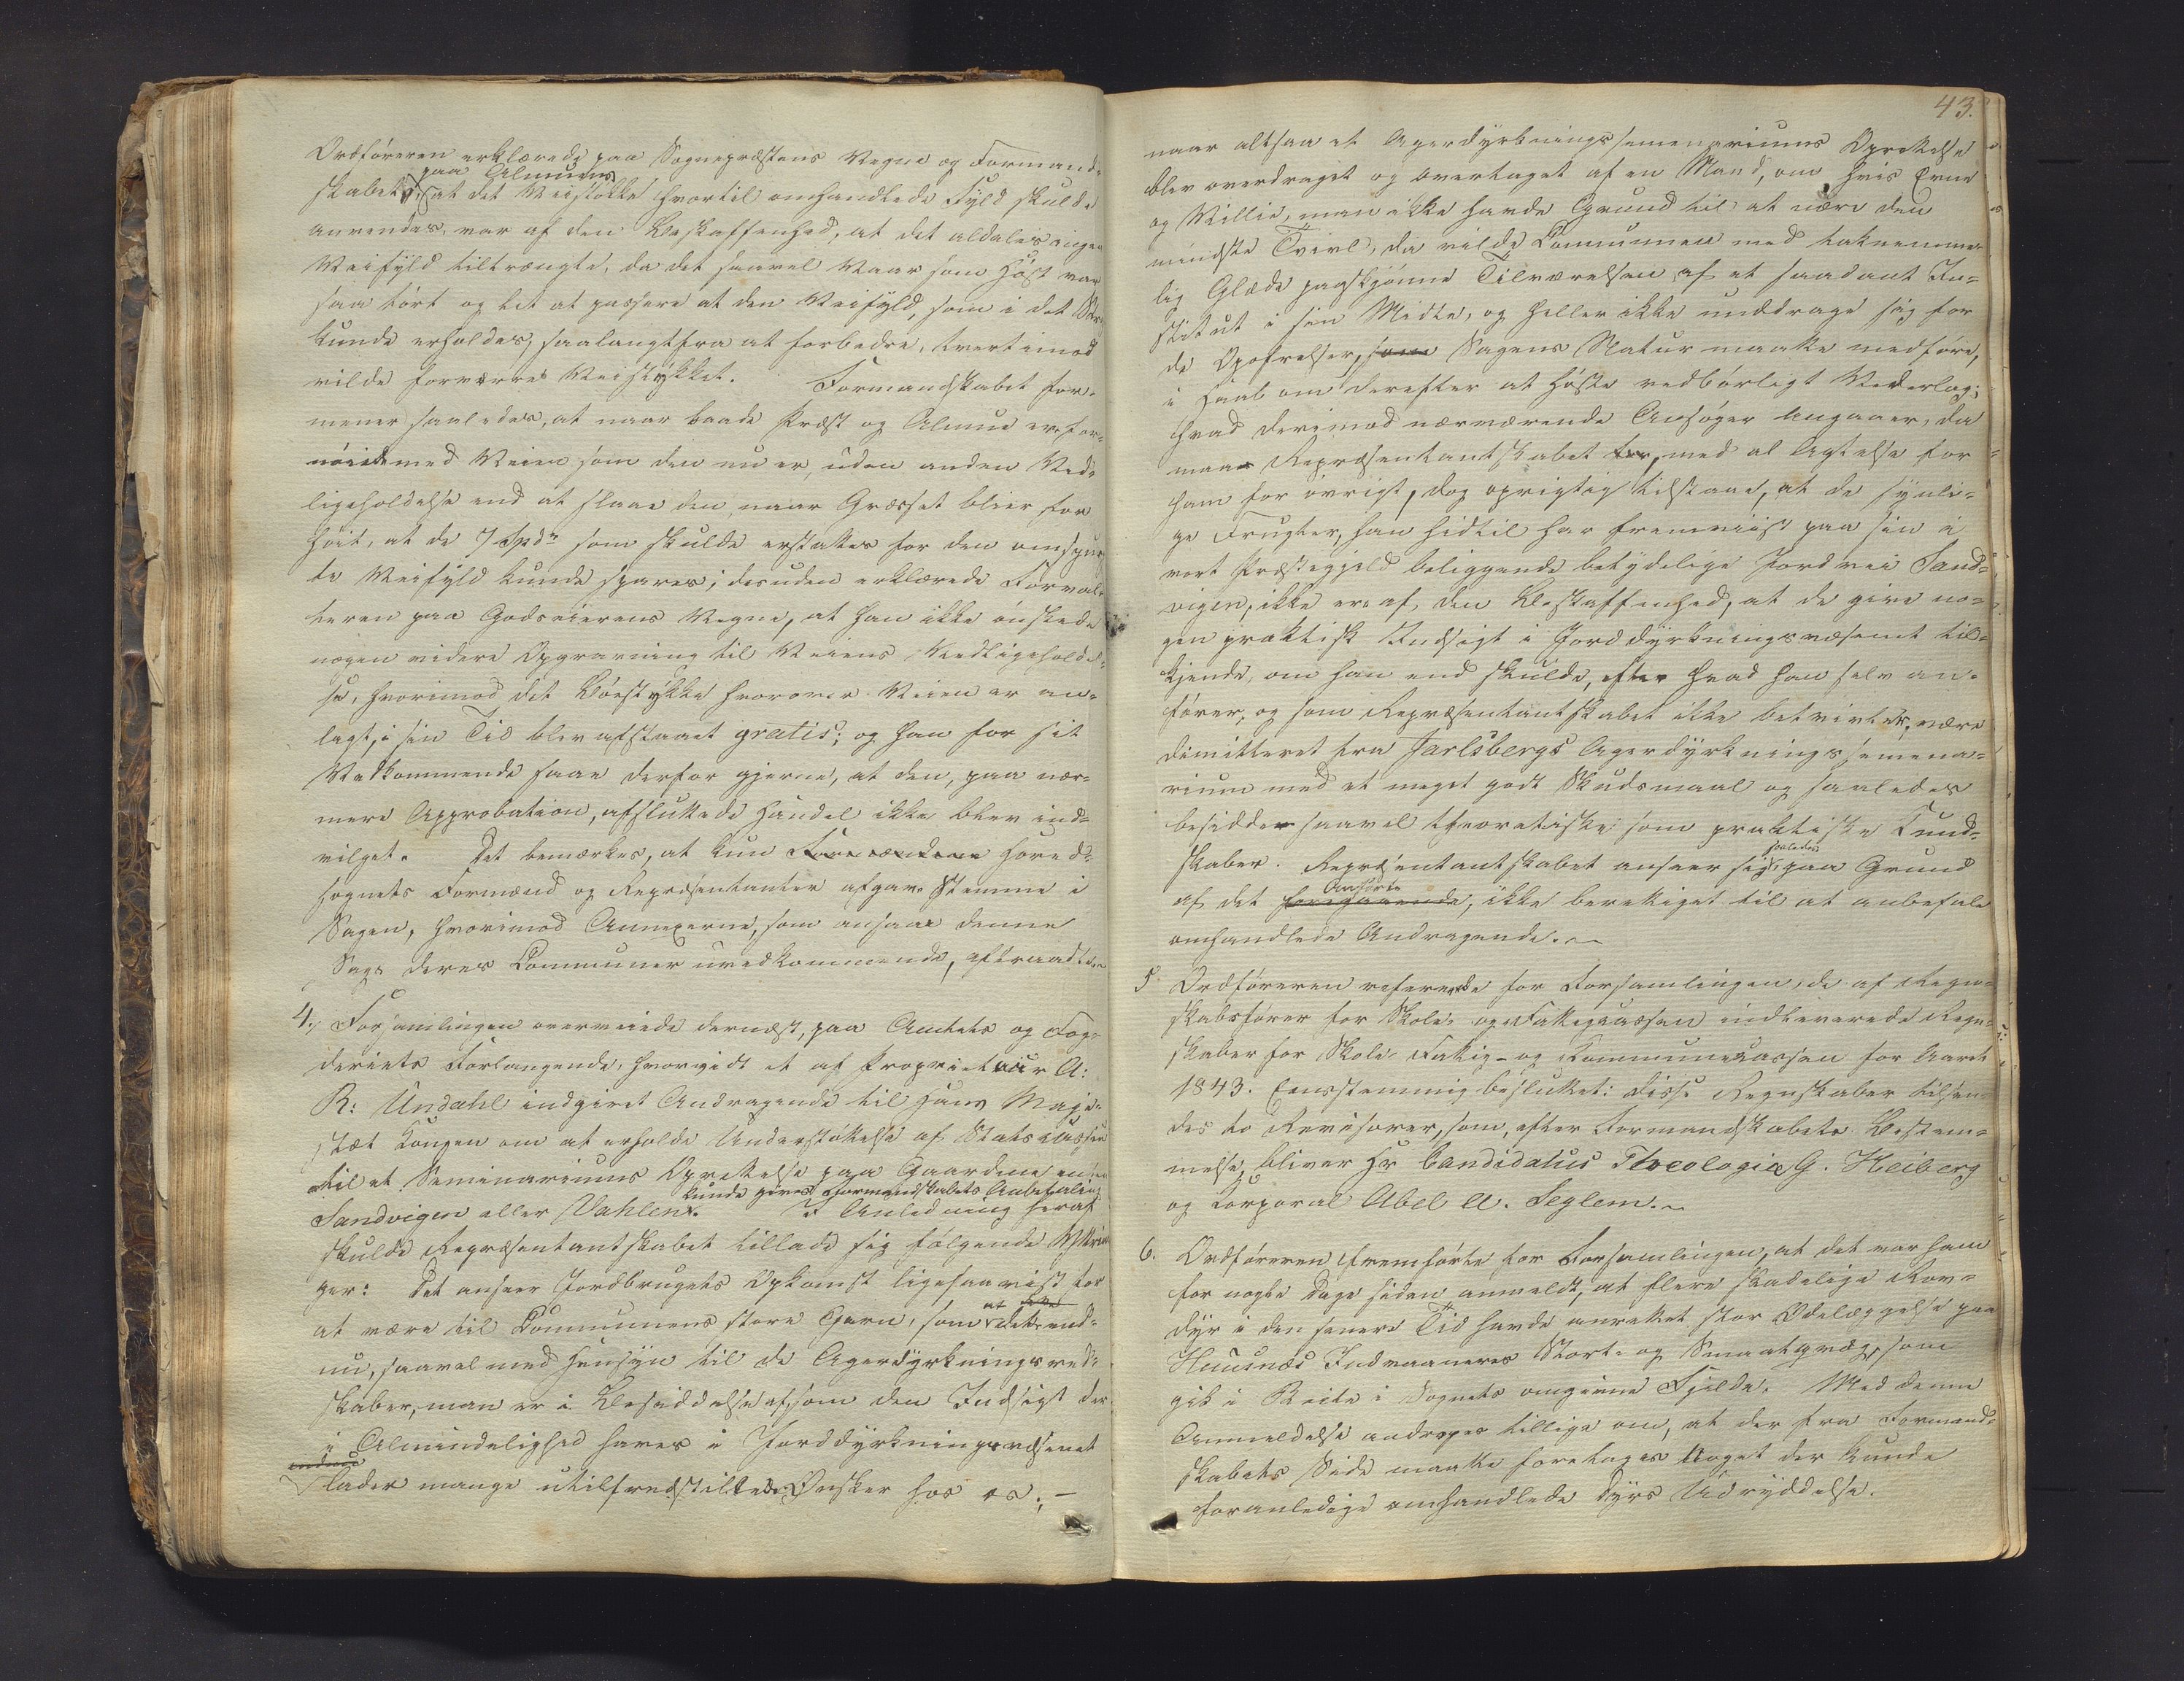 Ordføreren erklærede paa Sognepræstens Vegne og Formand-
paa Almuens
skabet, at det Veistøkke hvortil omhandlede Fyld skulde
anvendes, var af den Beskaffenhed, at det aldeles ingen
Veifyld tiltrængte, da det saavel Vaar som Høst var
saa tørt og let at passere at den Veifyld, som i det
kunde erholdes, saalangtfra at forbedre, tvertimod
vilde forværre Veistykket. Formandskabet for-
mener saaledes, at naar baade Præst og Almue er for-
nøiede med Veien som den nu er, uden anden Ved-
ligeholdelse end at slaae den, naar Græsset blier for
høit, at de 7 Spdr som skulde erstattes for den omspurg-
te Veifyld kunde spares; desuden erklærede Forval-
teren paa Godseierens Vegne, at han ikke ønskede
nogen videre Opgravning til Veiens Vedligeholdel-
se, hvorimod det Bøestykke hvorover Veien er an-
lagt, i sin Tid blev afstaaet gratis; og han for sit
Vedkommende saae derfor gjerne, at den, paa nær-
mere Approbation, afsluttede Handel ikke blev ind-
vilget. Det bemærkes, at kun Formændene Hoved-
sognets Formænd og Repræsentanter afgav Stemme i
Sagen, hvorimod Annexerne, som ansaae denne
Sag deres Communer uvedkommende, aftraadte.
4, Forsamlingen overveiede dernæst, paa Amtets og Fog-
deriets Forlangende, hvorvidt et af Proprietair A:
R: Undahl indgivet Andragende til Hans Maje-
stæt Kongen om at erholde Understøttelse af Statscassen
til et Seminariums Oprettelse paa Gaardene enten
kunde gives Formandskabets Anbefaling
Sandvigen eller Vahlen. I Anledning heraf
skulde Repræsentantskabet tillade sig følgende Yttrin
ger: Det anseer Jordbrugets Opkomst ligesaavist for
at
at være til Communens store Gavn, som det end-
nu, saavel med Hensyn til de Agerdyrkningsred-
skaber, man er i Besiddelse af, som den Indsigt der
i Almindelighed haves i Jorddyrkningsvæsenet
endnu
lader mange utilfredsstillede Ønsker hos os; —
43.
naar altsaa et Agerdyrkningsseminariums Oprettelse
blev overdraget og overtaget af en Mand, om hvis Evne
og Villie, man ikke havde Grund til at nære den
mindste Tvivl, da vilde Communen med taknemme-
lig Glæde paaskjønne Tilværelsen af et saadant In-
stitut i sin Midte, og heller ikke unddrage sig for
de Opofrelser, som Sagens Natur maatte medføre,
i Haab om derefter at høste vedbørligt Vederlag;
hvad derimod nærværende Ansøger angaaer, da
maa Repræsentantskabet tør, med al Agtelse for
ham for øvrigt, dog oprigtig tilstaae, at de synli-
ge Frugter, han hidtil har fremviist paa sin i
vort Præstegjeld beliggende betydelige Jordvei Sand-
vigen, ikke ere af den Beskaffenhed, at de give no-
gen praktisk Indsigt i Jorddyrkningsvæsenet til-
kjende, om han end skulde, efter hvad han selv an-
fører, og som Repræsentantskabet ikke betvivler, være
dimitteret fra Jarlsbergs Agerdyrknings semena-
rium med et meget godt Skudsmaal og saaledes
besidder saavel theoretiske som praktiske Kund-
saaledes
skaber. Repræsentantskabet anseer sig, paa Grund
Anførte
af det foregaaende, ikke berettiget til at anbefale
omhandlede Andragende.
5 Ordføreren refererede for Forsamlingen, de af Regn-
skabsfører for Skole- og Fattigcassen indleverede Regn-
skaber for Skole- Fattig- og Kommunecassen for Aaret
1843. Eensstemmig besluttet: disse Regnskaber tilsen-
des to Revisorer, som, efter Formandskabets Bestem-
melse, bliver Hr Candidatus Theologiæ G. Heiberg
og Korporal Abel A. Seglem.
6. Ordføreren fremførte for Forsamlingen, at det var ham
for nogle Dage siden anmeldt, at flere skadelige Rov-
dyr i den senere Tid havde anrettet stor Ødelæggelse paa
Huusnæs Indvaaneres Stort- og Smaatqvæg, som
gik i Beite i Sognets omgivne Fjelde. Med denne
Anmeldelse androges tillige om, at der fra Formand-
skabets Side maatte foretages Noget der kunde
foranledige omhandlede Dyrs Udryddelse.